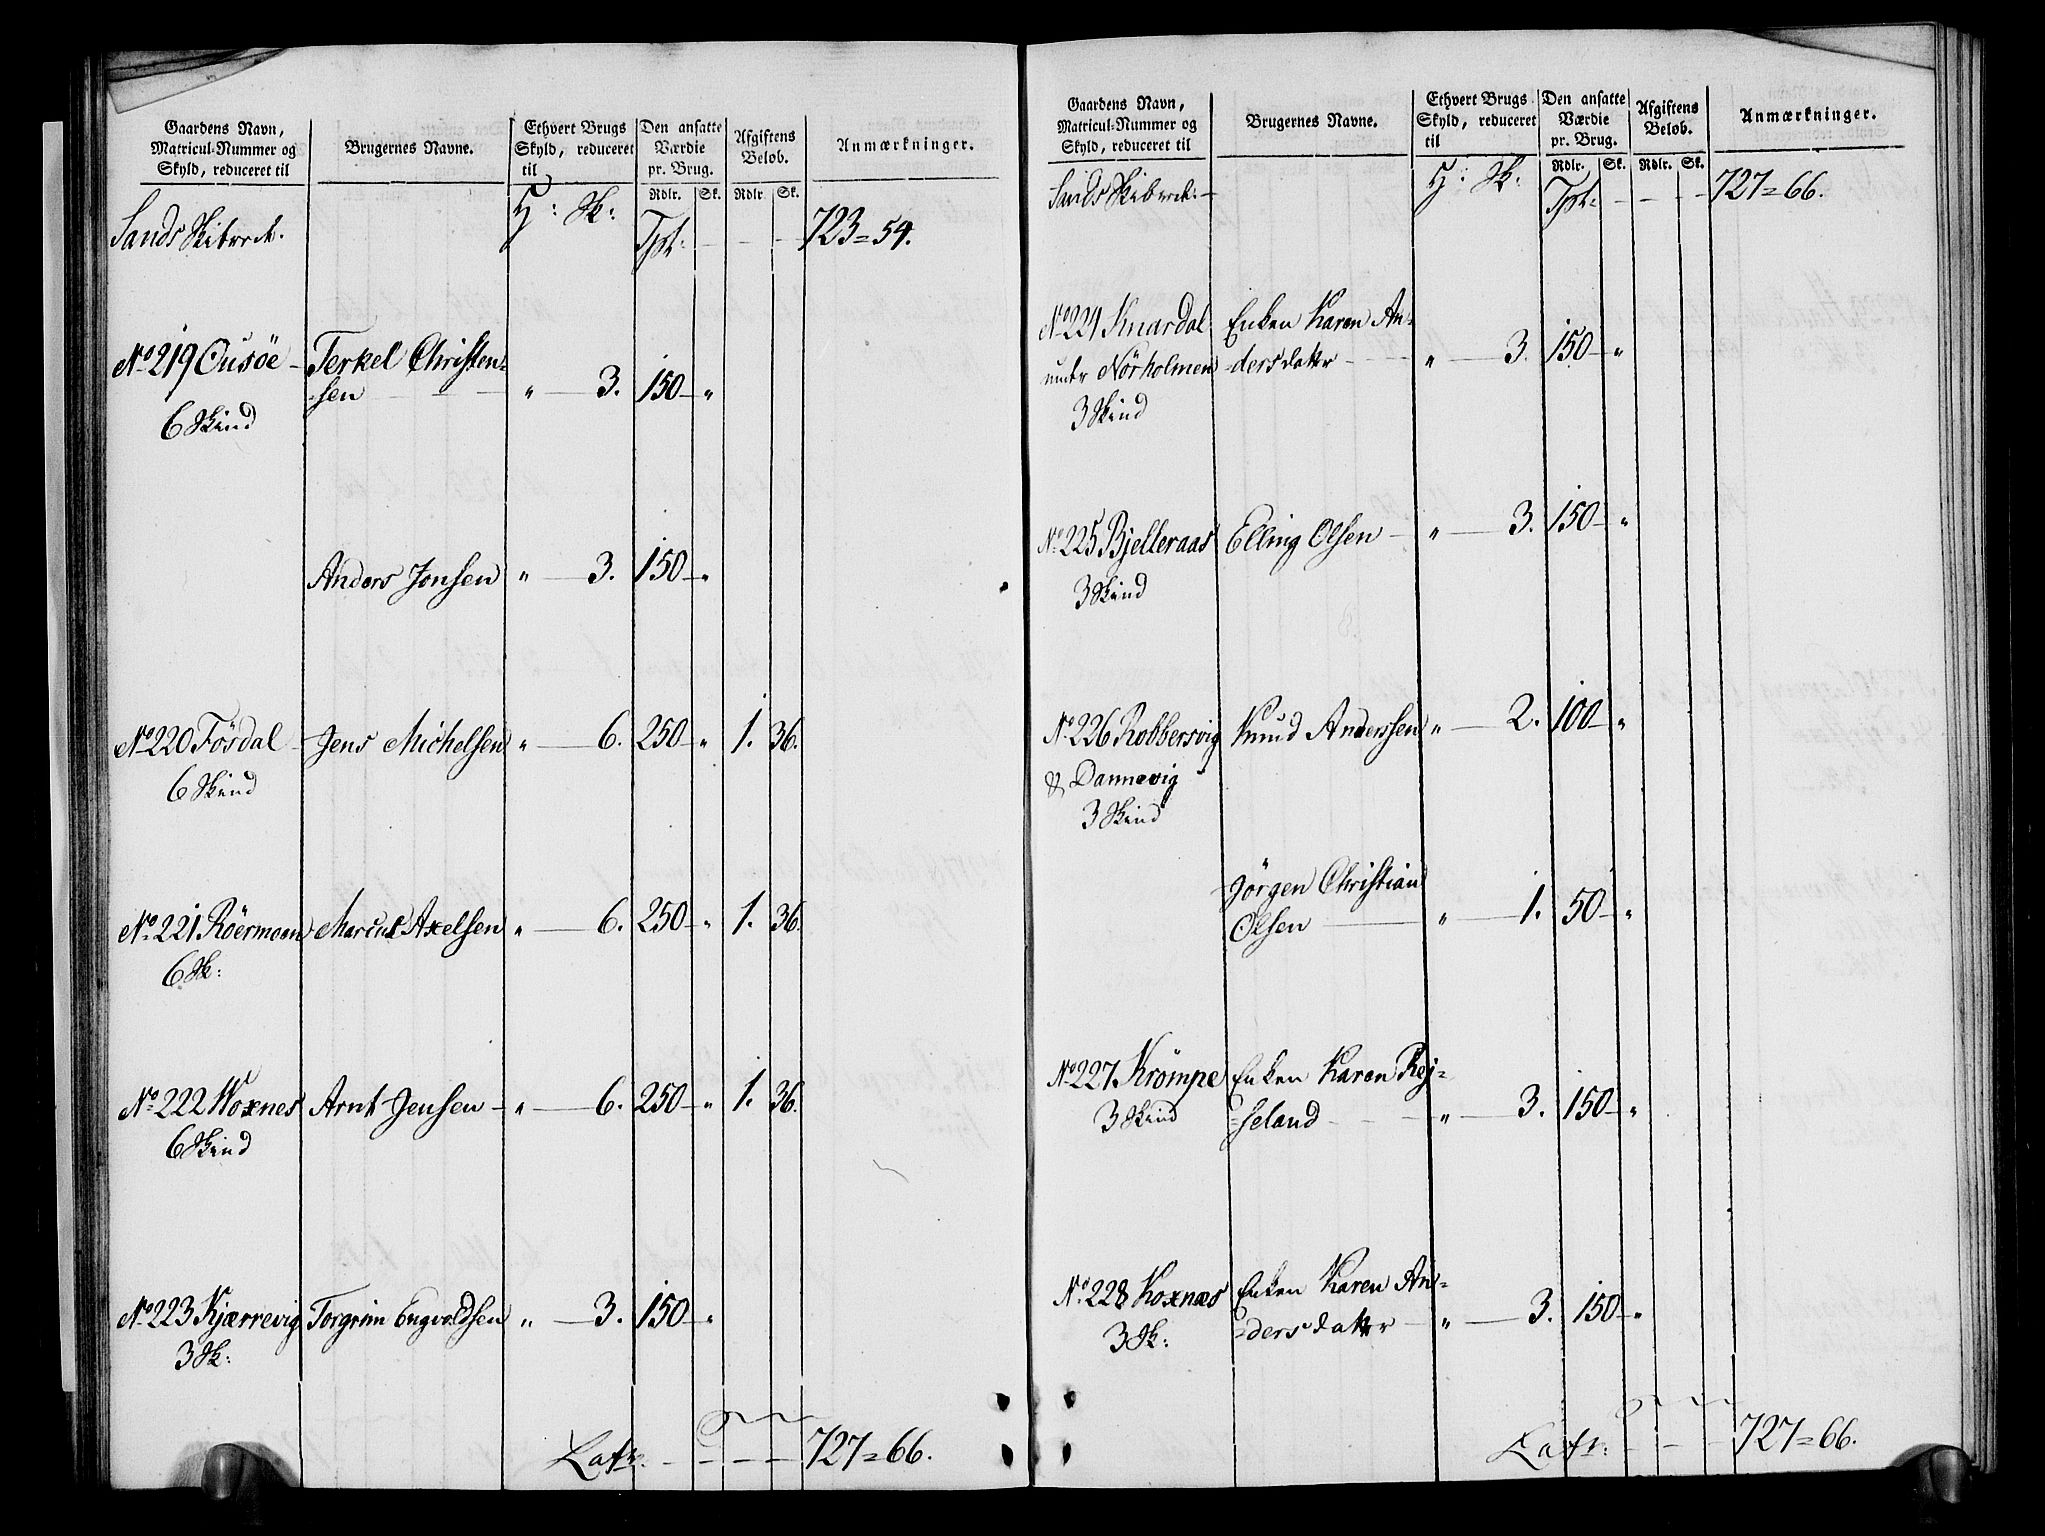 Gaardens Navn, Matricul-Nummer og Skyld, reduceret til | Brugernes Navne. | Ethvert Brugs Skyld, reduceret til | Den ansatte Værdie pr. Brug. | Afgiftens Beløb. | Anmærkninger.
Rdlr. Sk. Rdlr Sk.
Sands Skibrede. H: Sk: Tpt: 723=54.
No 219 Ousöe Terkel Christen=
=sen " 3. 150 "
6 Skind
Anders Jonsen " 3. 150 "
No 220 Fösdal Jens Michelsen " 6. 250 " 1. 36.
6 Skind
No 221 Röermoen Marcus Axelsen " 6. 250 " 1. 36.
6 Sk:
No 222 Woxnes Arnt Jensen " 6. 250 " 1. 36.
6 Skind
No 223 Kjærrevig Torgrim Engvoldsen " 3. 150 "
3 Sk:
Latr. 727=66.
Gaardens Navn, Matricul-Nummer og Skyld, reduceret til | Brugernes Navne. | Ethvert Brugs Skyld, reduceret til | Den ansatte Værdie pr. Brug. | Afgiftens Beløb. | Anmærkninger.
Rdlr. Sk. Rdlr. Sk.
Sands Skibrede: H: Sk: Tpt: 727=66.
No 224 Knardal Enken Karen An=
under Nörholmen =dersdattr " 3. 150 "
3 Skind
No 225 Bjelleraas Elling Olsen " 3. 150 "
3 Skind
No 226 Robbersvig Knud Anderssen " 2. 100 "
& Dannevig
3 Skind
Jörgen Christian
Olsen " 1. 50 "
No 227 Krömpe Enken Karen Rej=
3 Skind =seland " 3. 150 "
No 228 Koxnæs Enken Karen An=
=dersdattr " 3. 150 "
3 Sk:
Latr: 727=66.